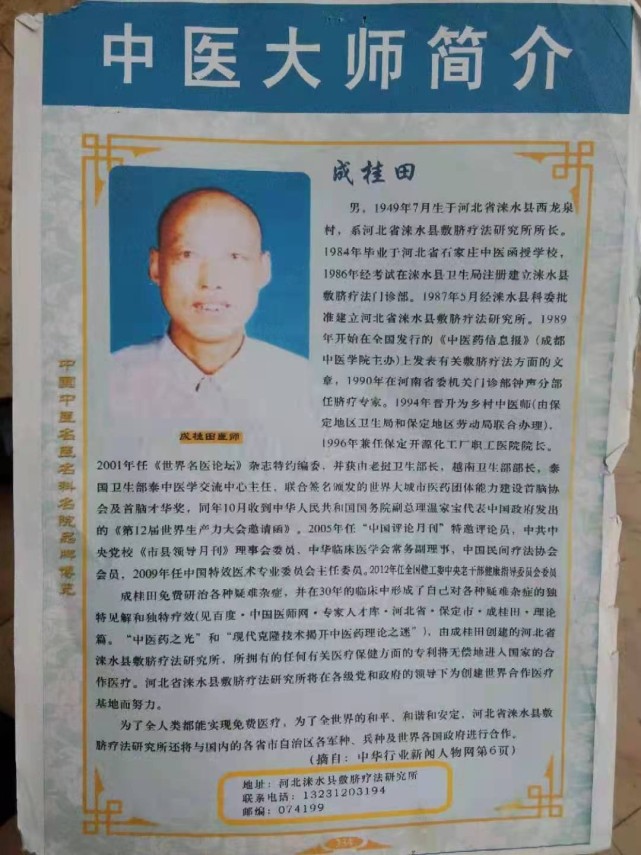 中医大师简介
成桂田
男，1949年7月生于河北省涞水县西龙泉
村，系河北省涞水县敷脐疗法研究所所长。
1984年毕业于河北省石家庄中医函授学校，
1986年经考试在涞水县卫生局注册建立涞水县
敷脐疗法门诊部。1987年5月经涞水县科委批
准建立河北省涞水县敷脐疗法研究所。1989
年开始在全国发行的《中医药信息报》（成都
中医学院主办）上发表有关敷脐疗法方面的文
章，1990年在河南省委机关门诊部钟声分部
任脐疗专家。1994年晋升为乡村中医师（由保
定地区卫生局和保定地区劳动局联合办理）。
1996年兼任保定开源化工厂职工医院院长。
成桂田医师
中国中医名医名科名院品牌博览
2001年任《世界名医论坛》杂志特约编委，并获由老挝卫生部长，越南卫生部部长，泰
国卫生部泰中医学交流中心主任，联合签名颁发的世界大城市医药团体能力建设首脑协
会及首脑才华奖，同年10月收到中华人民共和国国务院副总理温家宝代表中国政府发出
的《第12届世界生产力大会邀请函》。2005年任“中国评论月刊”特邀评论员，中共中
央党校《市县领导月刊》理事会委员，中华临床医学会常务副理事，中国民间疗法协会
会员，2009年任中国特效医术专业委员会主任委员。2012年任全国健工委中央老干部健康指导委员会委员
成桂田免费研治各种疑难杂症，并在30年的临床中形成了自己对各种疑难杂症的独
特见解和独特疗效（见百度·中国医师网·专家人才库·河北省·保定市·成桂田·理论
篇。“中医药之光”和“现代克隆技术揭开中医药理论之迷”），由成桂田创建的河北省
涞水县敷脐疗法研究所，所拥有的任何有关医疗保健方面的专利将无偿地进入国家的合
作医疗。河北省涞水县敷脐疗法研究所将在各级党和政府的领导下为创建世界合作医疗
基地而努力。
为了全人类都能实现免费医疗，为了全世界的和平、和谐和安定，河北省涞水县敷
脐疗法研究所还将与国内的各省市自治区各军种、兵种及世界各国政府进行合作。
（摘自：中华行业新闻人物网第6页）
地址：河北涞水县敷脐疗法研究所
联系电话：13231203194
邮编：074199